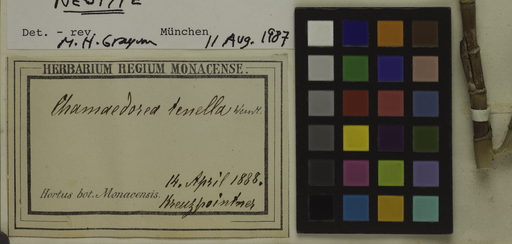 NEOTYPE
Det. - rev. München
M. H. Grayum 11 Aug. 1987
HERBARIUM REGIUM MONACENSE.
Chamaedorea tenella Wendl.
14. April 1888.
Hortus bot. Monacensis
Kreuzpointner